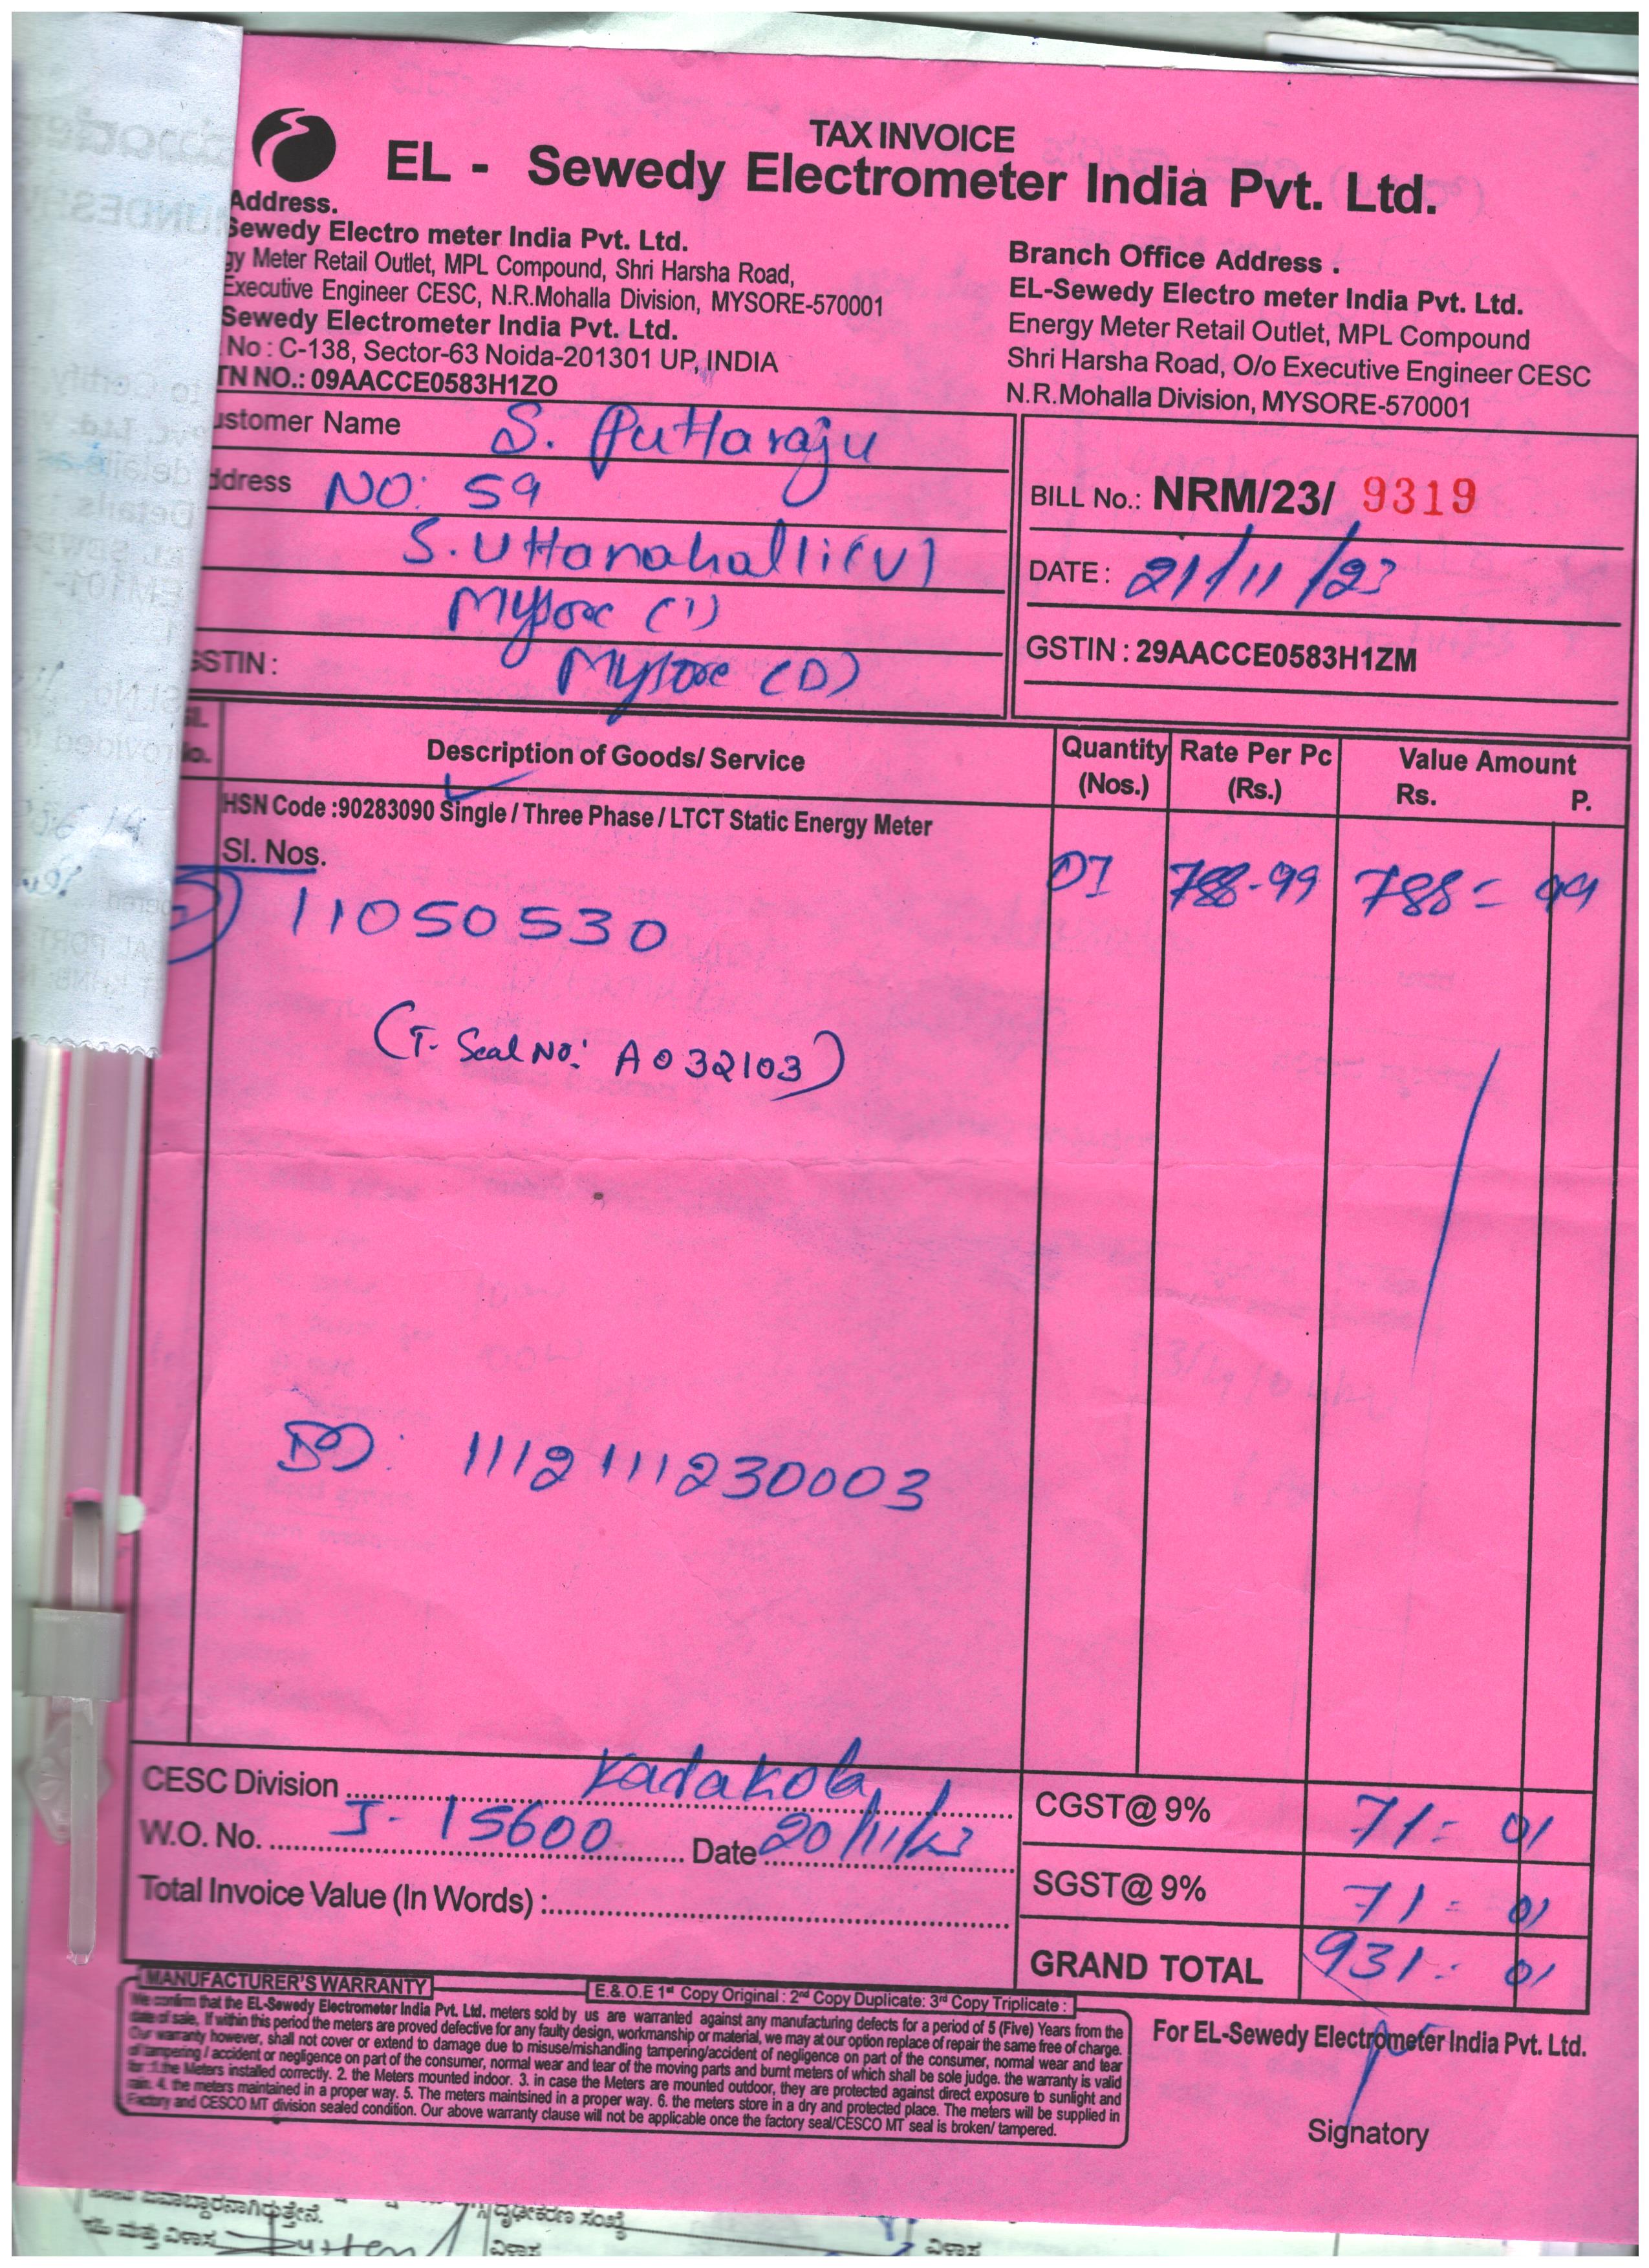 TAX INVOICE
EL - Sewedy Electrometer India Pvt. Ltd.
Address.
Sewedy Electro meter India Pvt. Ltd.
gy Meter Retail Outlet, MPL Compound, Shri Harsha Road,
Executive Engineer CESC, N.R.Mohalla Division, MYSORE-570001
Sewedy Electrometer India Pvt. Ltd.
No : C-138, Sector-63 Noida-201301 UP, INDIA
TN NO.: 09AACCE0583H1ZO
Branch Office Address .
EL-Sewedy Electro meter India Pvt. Ltd.
Energy Meter Retail Outlet, MPL Compound
Shri Harsha Road, O/o Executive Engineer CESC
N.R.Mohalla Division, MYSORE-570001
ustomer Name S. Puttaraju
ddress NO: 59
S. Uttanahalli (V)
Mysore (T)
GSTIN : Mysore (D)
BILL No.: NRM/23/ 9319
DATE : 21/11/23
GSTIN : 29AACCE0583H1ZM
Sl. No. Description of Goods/ Service Quantity (Nos.) Rate Per Pc (Rs.) Value Amount Rs. P.
HSN Code :90283090 Single / Three Phase / LTCT Static Energy Meter
Sl. Nos.
11050530 01 788-99 788= 99
(T. Seal No: A032103)
1112111230003
CESC Division Kadakola
W.O. No. J- 15600 Date 20/11/23
Total Invoice Value (In Words) :
CGST@ 9% 71= 01
SGST@ 9% 71= 01
GRAND TOTAL 931= 01
MANUFACTURER'S WARRANTY
E.&.O.E 1st Copy Original : 2nd Copy Duplicate: 3rd Copy Triplicate :
We confirm that the EL-Sewedy Electrometer India Pvt. Ltd. meters sold by us are warranted against any manufacturing defects for a period of 5 (Five) Years from the
date of sale, If within this period the meters are proved defective for any faulty design, workmanship or material, we may at our option replace of repair the same free of charge.
Our warranty however, shall not cover or extend to damage due to misuse/mishandling tampering/accident of negligence on part of the consumer, normal wear and tear
of tampering / accident or negligence on part of the consumer, normal wear and tear of the moving parts and burnt meters of which shall be sole judge. the warranty is valid
for : 1.the Meters installed correctly. 2. the Meters mounted indoor. 3. in case the Meters are mounted outdoor, they are protected against direct exposure to sunlight and
rain. 4. the meters maintained in a proper way. 5. The meters maintsined in a proper way. 6. the meters store in a dry and protected place. The meters will be supplied in
Factory and CESCO MT division sealed condition. Our above warranty clause will not be applicable once the factory seal/CESCO MT seal is broken/ tampered.
For EL-Sewedy Electrometer India Pvt. Ltd.
Signatory
ದೃಢೀಕರಣ ಸಂಖ್ಯೆ
ಸಹಿ ಮತ್ತು ವಿಳಾಸ
ವಿಳಾಸ
ವಿಳಾಸ